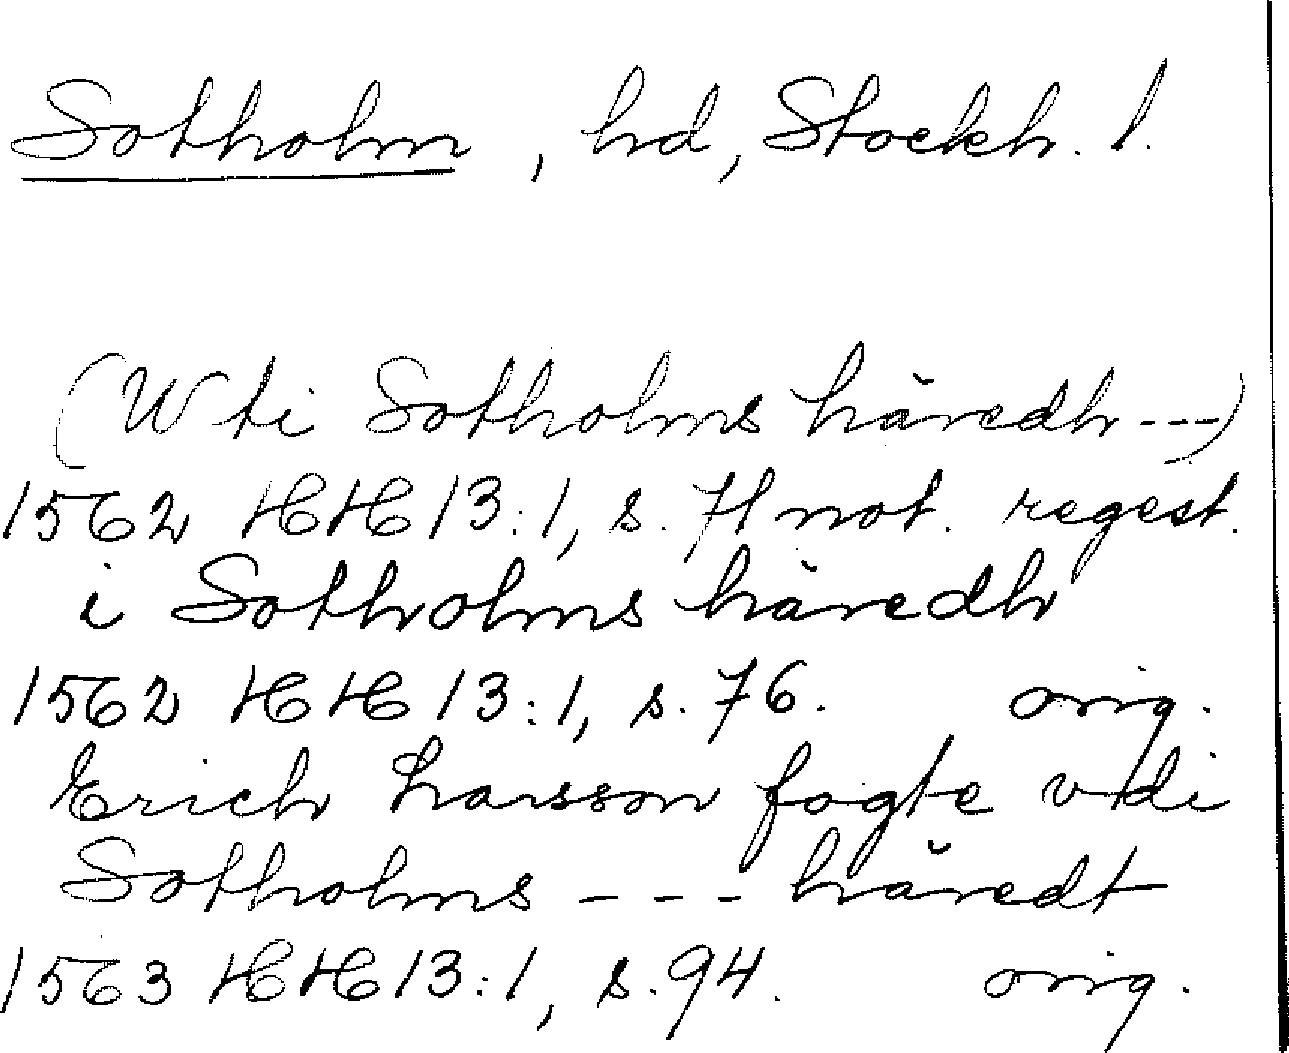 Sotholm, hd, Stockh. l.
(W ti Sotholms häredh ---)
1562 HH 13:1, s. 71 not. regest.
i Sotholms häredh
1562 HH 13:1, s. 76. orig.
Erich Larsson fogte vdi
Sotholms --- häredt
1563 HH 13:1, s. 94. orig.